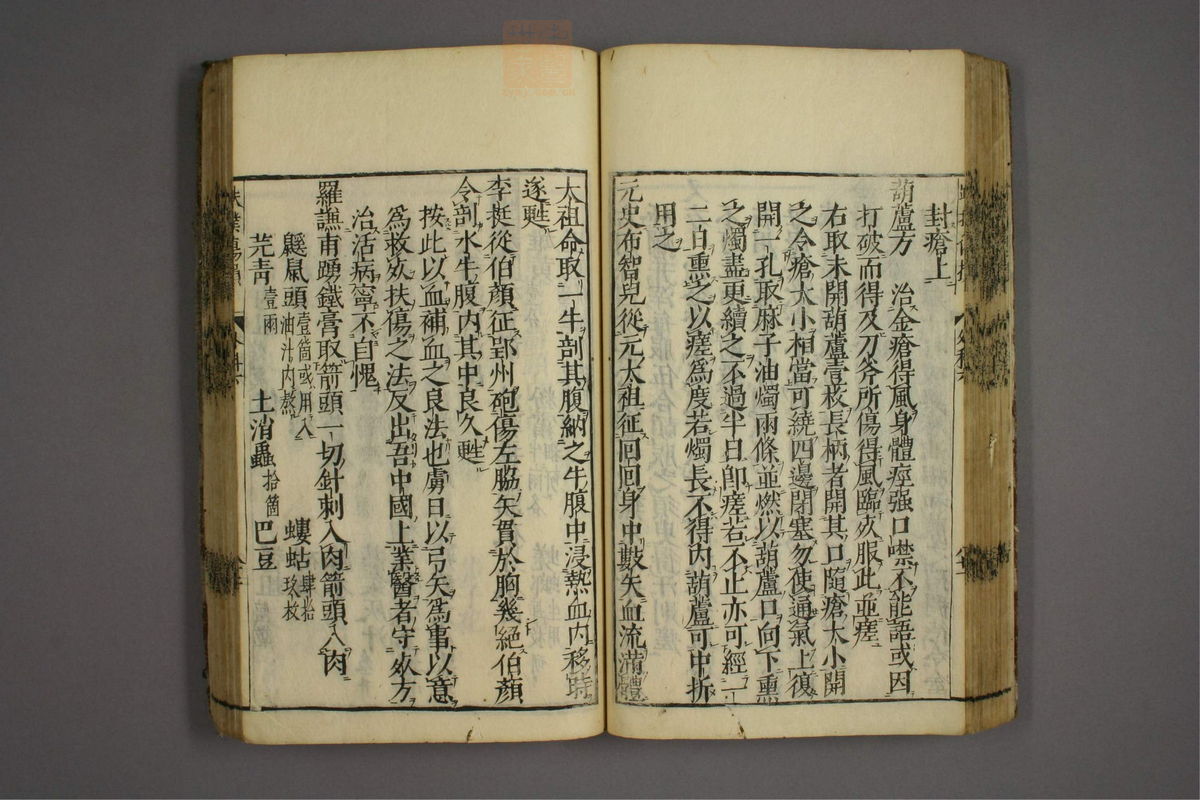 封瘡上
葫蘆方　治金瘡得風身體痙强口噤不能語或因
打破而得及刀斧所傷得風臨㳄服此並瘥
右取未開葫蘆壹枚長柄者開其口隨瘡大小開
之令瘡大小相當可繞四邊閉塞勿使通氣上復
開一孔取麻子油燭兩條並燃以葫蘆口向下熏
之燭盡更續之不過半日卽瘥若不止亦可經一
二日熏之以瘥爲度若燭長不得內葫蘆可中折
用之
元史布智兒從元太祖征回回身中數矢血流滿體
太祖命取一牛剖其腹納之牛腹中浸熱血內移時
遂甦
李挺從伯顏征郢州砲傷左脇矢貫於胸幾絕伯顏
令剖水牛腹內其中良久甦
按此以血補血之良法也虜日以弓矢爲事以意
爲救㳄扶傷之法反出吾中國上業醫者守㳄方
治活病寧不自愧
羅謙甫踴鐵膏取箭頭一切針刺入肉箭頭入肉
鼷鼠頭壹箇或用入油汁內熬　螻蛄肆拾玖枚
芫青壹兩　土消蟲拾箇　巴豆